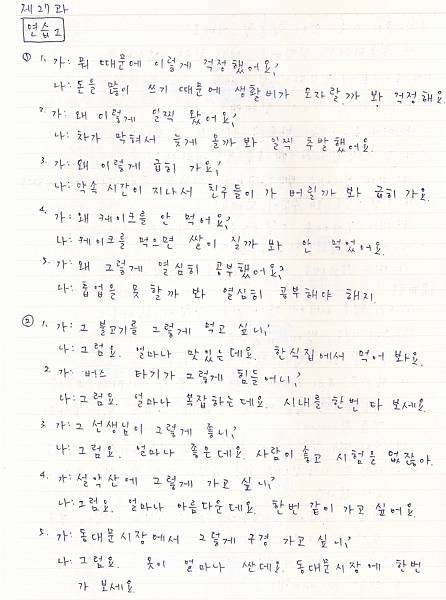 제 27 과
연습 2
① 1. 가: 뭐 때문에 이렇게 걱정했어요?
나: 돈을 많이 쓰기 때문에 생활비가 모자랄까 봐 걱정해요.
2. 가: 왜 이렇게 일찍 왔어요?
나: 차가 막혀서 늦게 올까 봐 일찍 출발했어요.
3. 가: 왜 이렇게 급히 가요?
나: 약속 시간이 지나서 친구들이 가 버릴까 봐 급히 가요.
4. 가: 왜 케이크를 안 먹어요?
나: 케이크를 먹으면 쌀이 질까 봐 안 먹었어요.
5. 가: 왜 그렇게 열심히 공부했어요?
나: 졸업을 못 할까 봐 열심히 공부해야 해지.
② 1. 가: 그 불고기를 그렇게 먹고 싶니?
나: 그럼요. 얼마나 맛있는데요. 한식집에서 먹어 봐요.
2. 가: 버스 타기가 그렇게 힘들어니?
나: 그럼요. 얼마나 복잡하는데요. 시내를 한번 타 보세요.
3. 가: 그 선생님이 그렇게 좋니?
나: 그럼요. 얼마나 좋은데요. 사람이 좋고 시험을 없잖아.
4. 가: 설악산에 그렇게 가고 싶니?
나: 그럼요. 얼마나 아름다운데요. 한번 같이 가고 싶어요.
5. 가: 동대문시장에서 그렇게 구경 가고 싶니?
나: 그럼요. 옷이 얼마나 싼데요. 동대문시장에 한번
가 보세요.